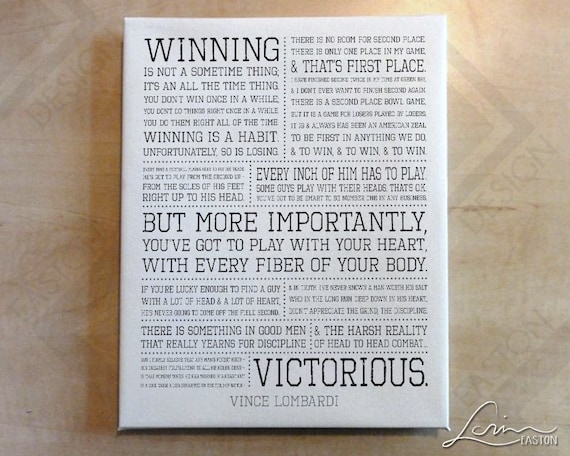 WINNING
IS NOT A SOMETIME THING;
IT'S AN ALL THE TIME THING.
YOU DON'T WIN ONCE IN A WHILE;
YOU DON'T DO THINGS RIGHT ONCE IN A WHILE;
YOU DO THEM RIGHT ALL OF THE TIME.
WINNING IS A HABIT.
UNFORTUNATELY, SO IS LOSING.
THERE IS NO ROOM FOR SECOND PLACE.
THERE IS ONLY ONE PLACE IN MY GAME,
& THAT'S FIRST PLACE.
I HAVE FINISHED SECOND TWICE IN MY TIME AT GREEN BAY,
& I DON'T EVER WANT TO FINISH SECOND AGAIN.
THERE IS A SECOND PLACE BOWL GAME,
BUT IT IS A GAME FOR LOSERS PLAYED BY LOSERS.
IT IS & ALWAYS HAS BEEN AN AMERICAN ZEAL
TO BE FIRST IN ANYTHING WE DO,
& TO WIN, & TO WIN, & TO WIN.
EVERY TIME A FOOTBALL PLAYER GOES TO PLY HIS TRADE
HE'S GOT TO PLAY FROM THE GROUND UP -
FROM THE SOLES OF HIS FEET
RIGHT UP TO HIS HEAD.
EVERY INCH OF HIM HAS TO PLAY.
SOME GUYS PLAY WITH THEIR HEADS. THAT'S O.K.
YOU'VE GOT TO BE SMART TO BE NUMBER ONE IN ANY BUSINESS.
BUT MORE IMPORTANTLY,
YOU'VE GOT TO PLAY WITH YOUR HEART,
WITH EVERY FIBER OF YOUR BODY.
IF YOU'RE LUCKY ENOUGH TO FIND A GUY
WITH A LOT OF HEAD & A LOT OF HEART,
HE'S NEVER GOING TO COME OFF THE FIELD SECOND.
& IN TRUTH, I'VE NEVER KNOWN A MAN WORTH HIS SALT
WHO IN THE LONG RUN, DEEP DOWN IN HIS HEART,
DIDN'T APPRECIATE THE GRIND, THE DISCIPLINE.
THERE IS SOMETHING IN GOOD MEN
THAT REALLY YEARNS FOR DISCIPLINE
& THE HARSH REALITY
OF HEAD TO HEAD COMBAT...
VICTORIOUS.
VINCE LOMBARDI
Lorin
EASTON